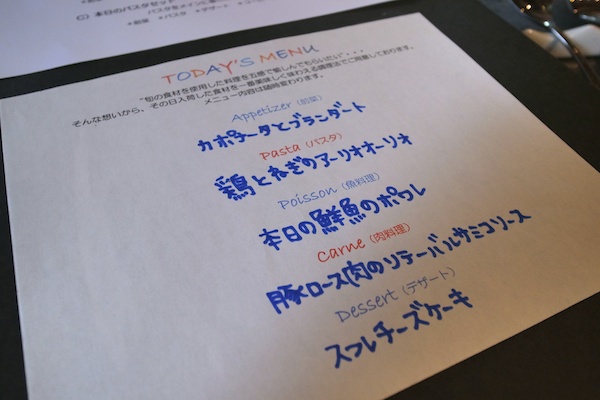 (C) 本日のパスタセット
TODAY'S MENU
"旬の食材を使用した料理を五感で愉しんでもらいたい・・・
そんな想いから、その日入荷した食材を一番美味しく味わえる調理法でご用意しております。
メニュー内容は随時変わります。
Appetizer (前菜)
カポナータとブランダート
Pasta (パスタ)
鶏とねぎのアーリオオーリオ
Poisson (魚料理)
本日の鮮魚のポワレ
Carne (肉料理)
豚ロース肉のソテーバルサミコソース
Dessert (デザート)
スフレチーズケーキ